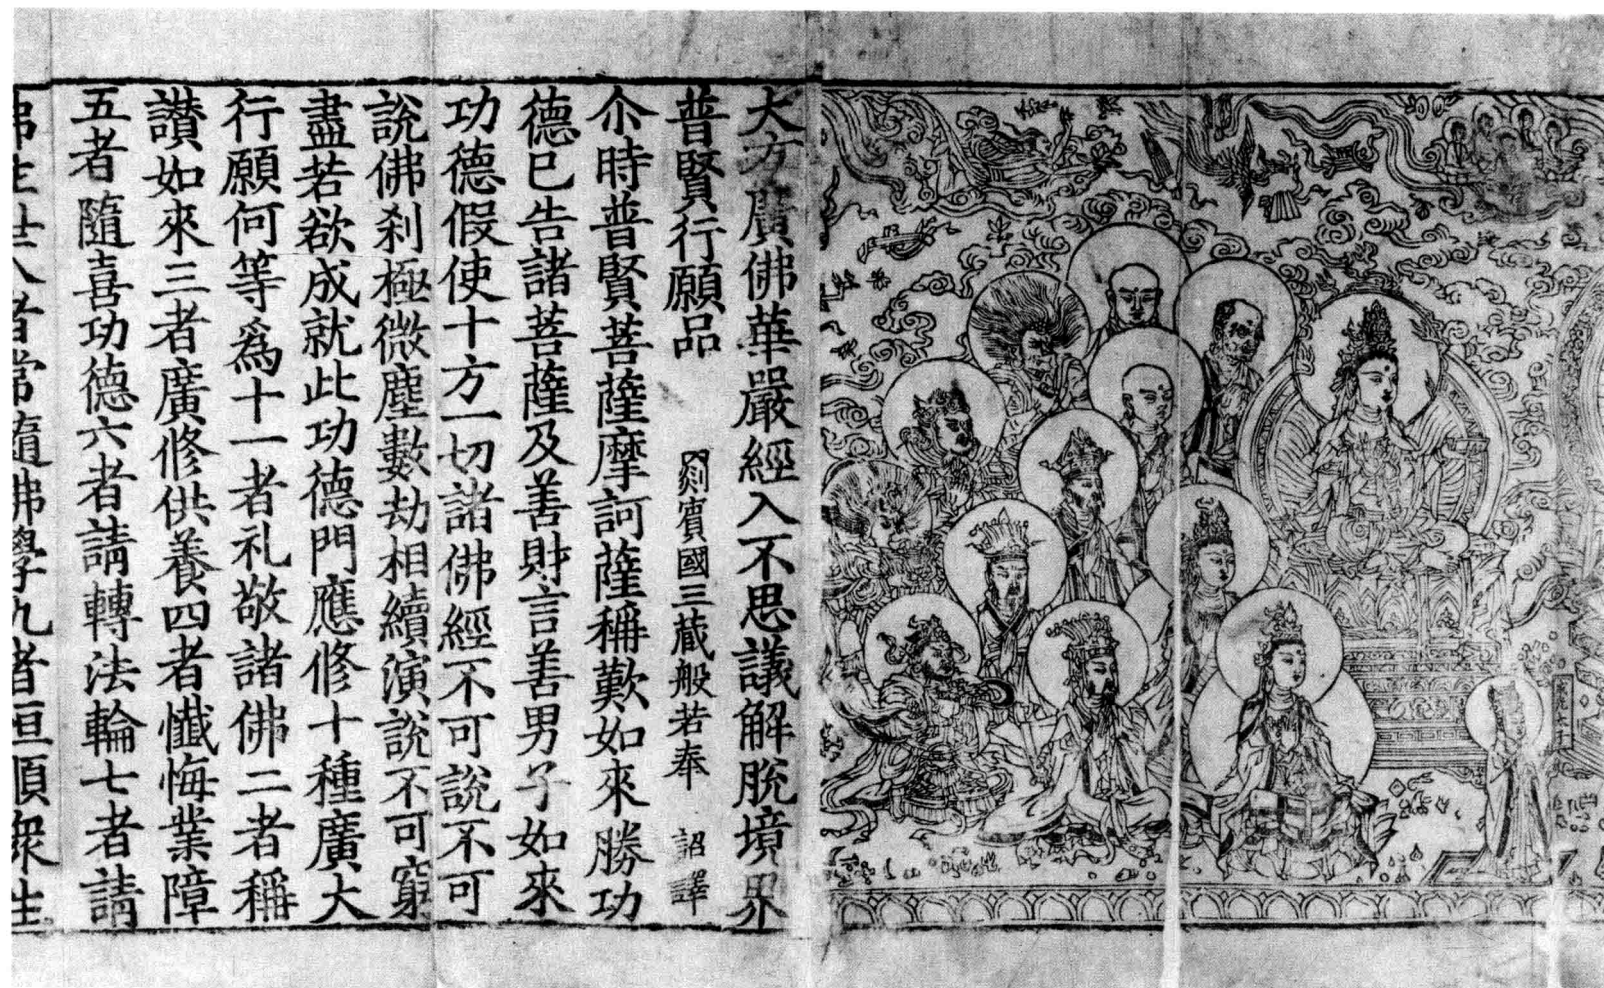 大方廣佛華嚴經入不思議解脫境界
普賢行願品 罽賓國三藏般若奉 詔譯
尒時普賢菩薩摩訶薩稱歎如來勝功
德已告諸菩薩及善財言善男子如來
功德假使十方一切諸佛經不可說不可
說佛刹極微塵數劫相續演說不可窮
盡若欲成就此功德門應修十種廣大
行願何等爲十一者礼敬諸佛二者稱
讃如來三者廣修供養四者懺悔業障
五者隨喜功德六者請轉法輪七者請
佛住世八者常隨佛學九者恒順衆生